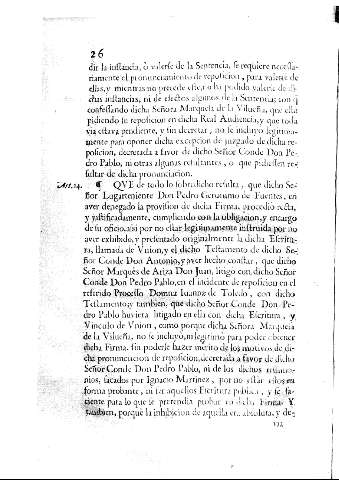 26
dir la instancia, ò valerse de la Sentencia, se requiere necessa-
riamente el pronunciamiento de reposicion, para valerse de
ellas, y mientras no precede este, no ha podido valerse de di-
chas instancias, ni de efectos algunos de la Sentencia; con q̃
confessando dicha Señora Marquesa de la Vilueña, que està
pidiendo la reposicion en dicha Real Audiencia, y que toda
via estava pendiente, y sin decretar, no se incluyo legitima-
mente para oponer dicha excepcion de juzgado de dicha re-
posicion, decretada à favor de dicho Señor Conde Don Pe-
dro Pablo, ni otras algunas resultantes, o que pudiessen re-
sultar de dicha pronunciacion.
Art. 24. ¶ QVE de todo lo sobredicho resulta, que dicho Se-
ñor Lugarteniente Don Pedro Geronimo de Fuentes, en
aver denegado la provision de dicha Firma, procedio recta,
y justificadamente, cumpliendo con la obligacion, y encargo
de su oficio, assi por no estar legitimamente instruida por no
aver exhibido, y presentado originalmente la dicha Escritu-
ra, llamada de Vnion, y el dicho Testamento de dicho Se-
ñor Conde Don Antonio, y aver hecho constar, que dicho
Señor Marquès de Ariza Don Juan, litigò con dicho Señor
Conde Don Pedro Pablo, en el incidente de reposicion en el
referido Processo Domnæ Ioannæ de Toledo, con dicho
Testamento; y tambien, que dicho Señor Conde Don Pe-
dro Pablo huviera litigado en ella con dicha Escritura, y
Vinculo de Vnion, como porque dicha Señora Marquesa
de la Vilueña, no se incluyò, ni legitimò para poder obtener
dicha Firma, sin poderse hazer merito de los motivos de di-
cha pronunciacion de reposicion, decretada à favor de dicho
Señor Conde Don Pedro Pablo, ni de los dichos testimo-
nios, sacados por Ignacio Martinez, por no estar estos en
forma probante, ni ser aquellos Escritura publica, y se fa-
ciente para lo que se pretendia probar en dicha Firma. Y
tambien, porque la inhibicion de aquella era absoluta, y de-